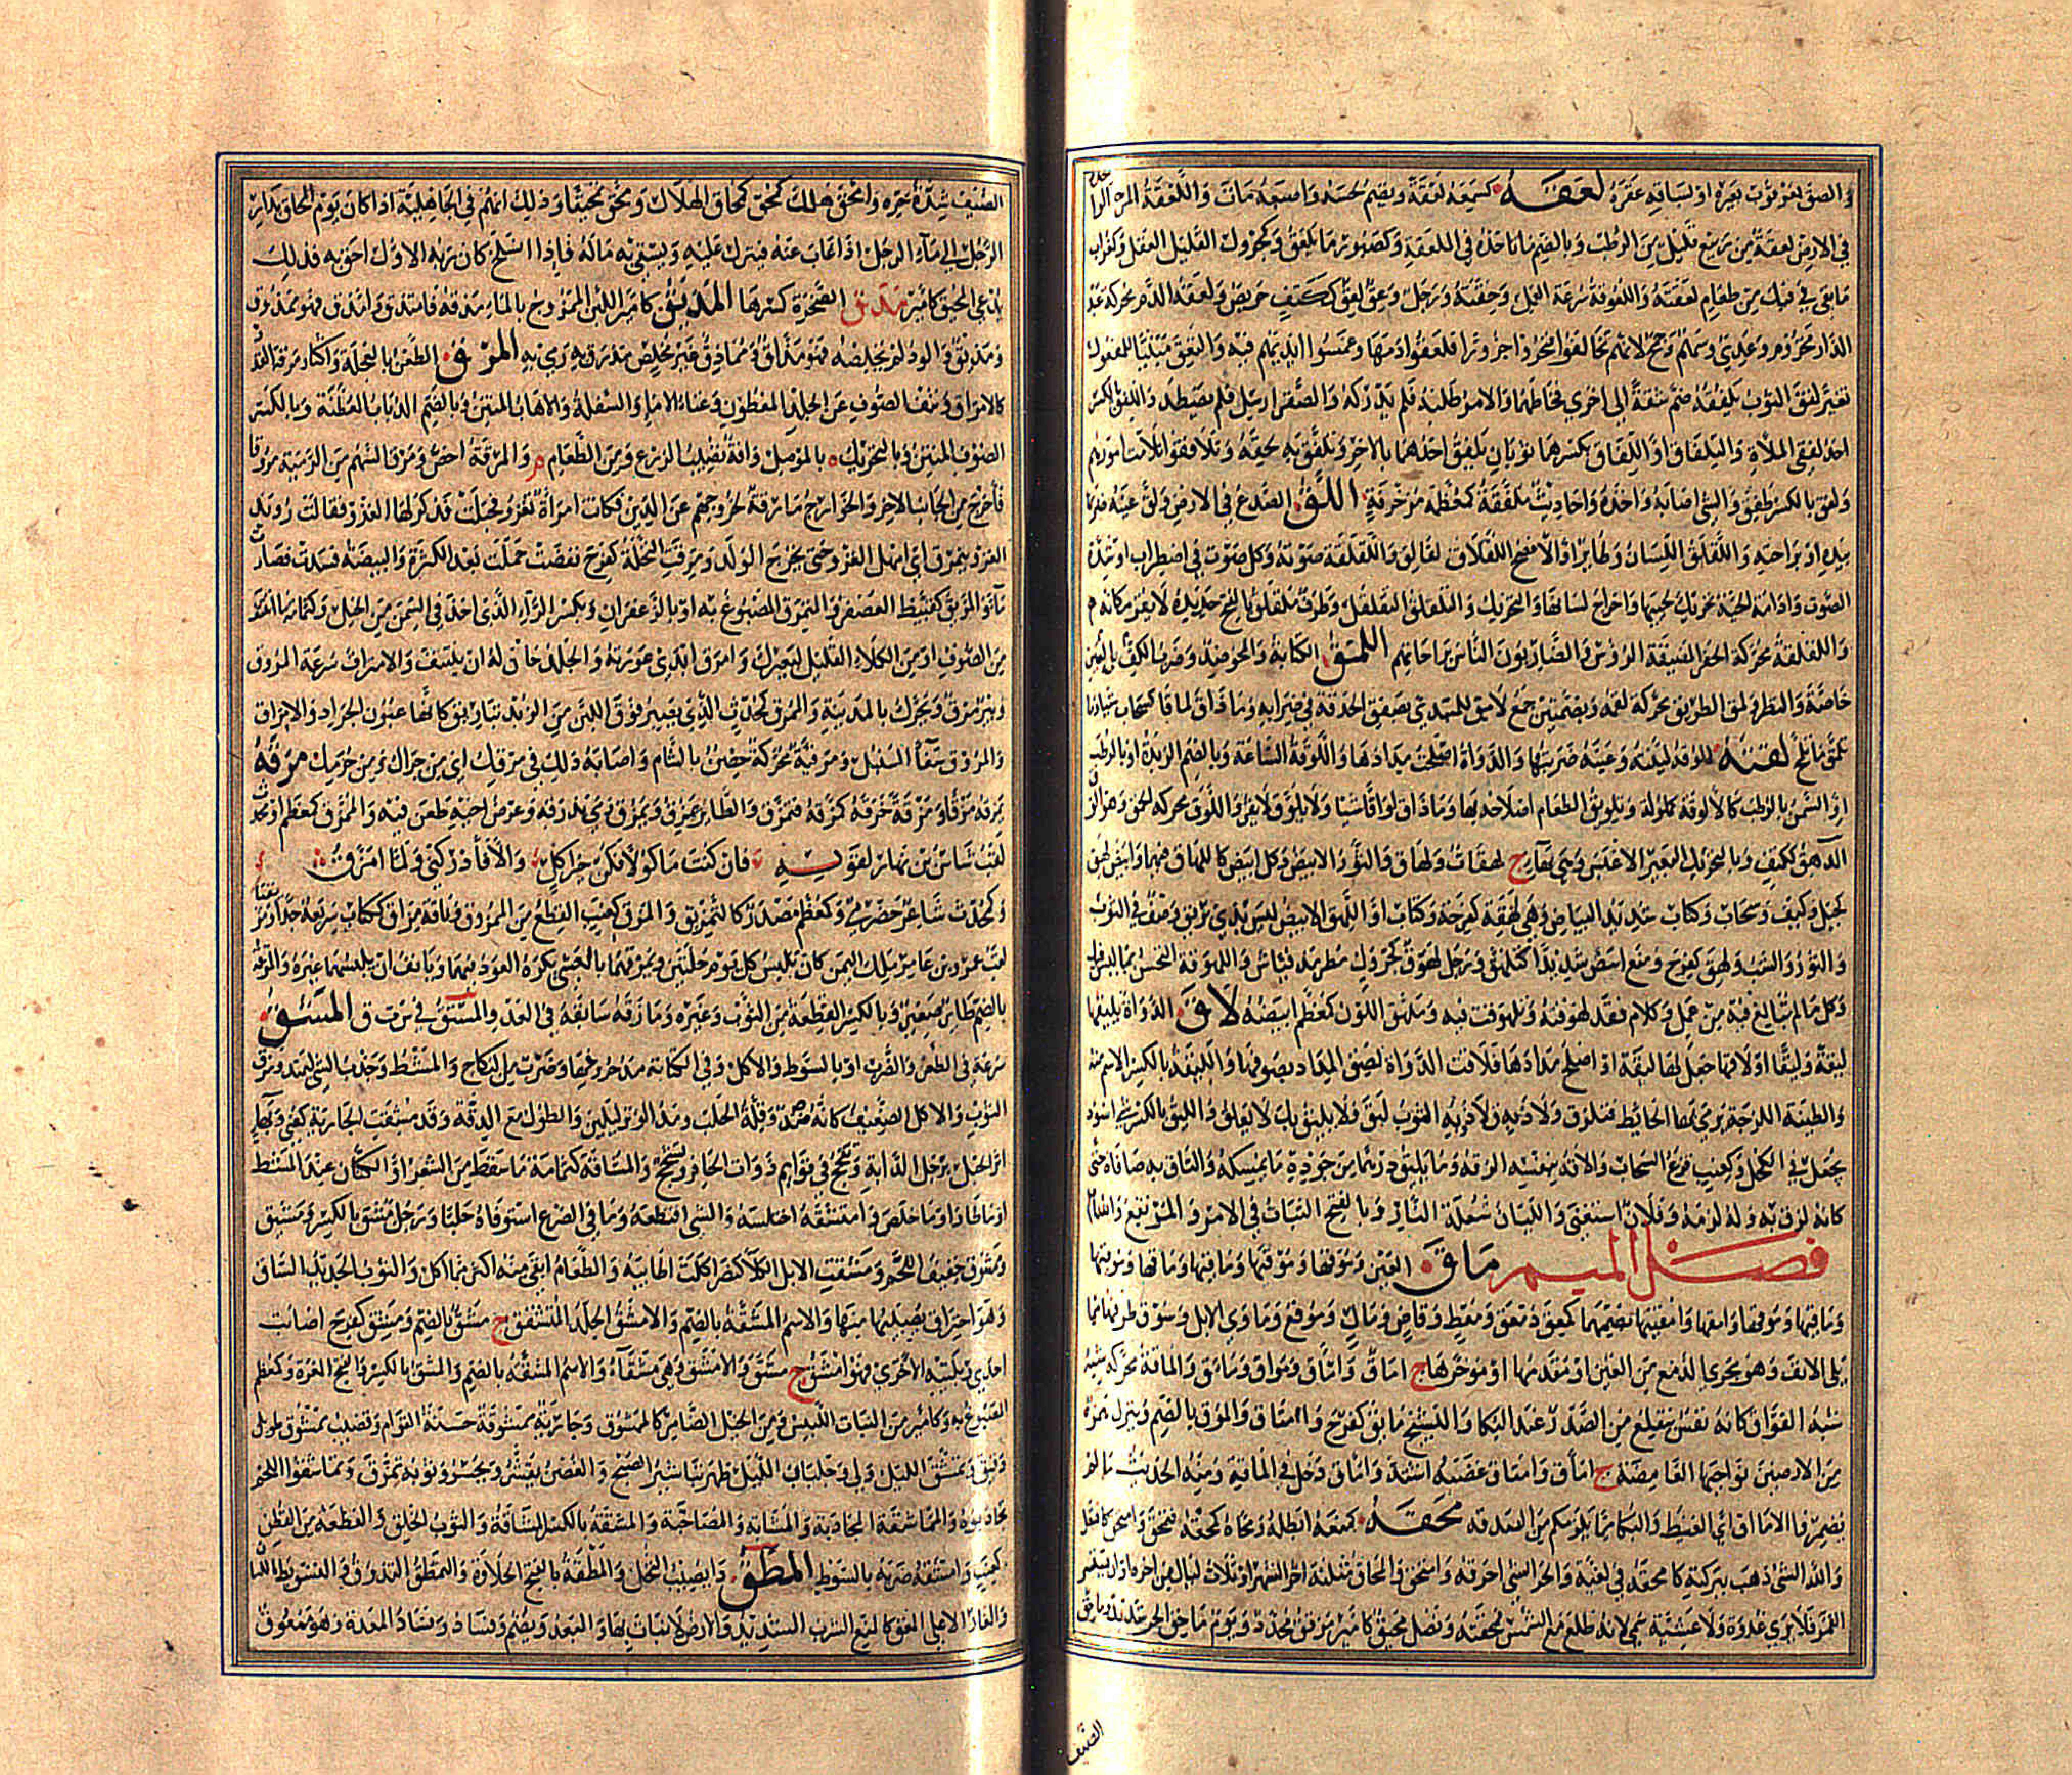 والصق بعقوثوب بعيره او لساقيه عقره لعقه كسمعه لعقة ويضم لحسه واصبعه مات واللعقة المرة الواحدة
في الارض لعقة من ربيع قليل من الرطب وبالضم ما تاخذه في الملعقة وكصبور ما يلعق وكجرول القليل العقل وكغراب
ما بقي في فيك من طعام لعقته واللعوقة سرعة العمل وخفته ورجل وعق لعق ككتف حريص ولعقة الدم محركة عبد
الدار مخزوم وعدي وسهم وجمح لانهم تحالفوا فنحروا جزورا فلعقوا دمها وغمسوا ايديهم فيه والتعق مبنيا للمفعول
تغير لفق الثوب يلفقه ضم شقة الى اخرى فخاطهما والامر طلبه فلم يدركه والصقر ارسل فلم يصطد واللفق بالكسر
احد لفقي الملاءة والتلفاق او اللفاق بكسرهما ثوبان يلفق احدهما بالاخر وتلفق به لحقه وتلافقوا تلاءمت امورهم
ولفق بالكسر طفق والشي اصابه واخذه واحاديث ملفقة كمعظمة مزخرفة اللق الصدع في الارض ولق عينه ضربها
بيده او براحته واللقلق اللسان وطائر او الافصح اللقلاق لقالق واللقلقة صوته وكل صوت في اضطراب او شدة
الصوت وادامة الحية تحريك لحييها واخراج لسانها والتحريك والتلقلق التقلقل وطرف ملقلق بالفتح حديد لا يقر مكانه م
واللقلقة محركة الحفر الضيقة الرؤس والضاربون الناس براحاتهم اللمق الكتابة والمحو ضد وضرب الكف بالعين
خاصة والنظر ولمق الطريق محركة لقمه وبضمتين جمع لامق للمبتدئ بصفق الحدقة في ضرابه وما ذاق لماقا كسحاب شيا وما
تلمق ما تلمج لقته للوقه ليقته وعينه ضربها والدواة اصلح مدادها واللوقة الساعة وبالضم الزبدة او بالرطب
او السمن بالرطب كالالوقة كملولة وتلويق الطعام اصلاحه بها وما ذاق لواقا شيا ولا يلوق لا يقر واللوق محركة الحمق وهو الوق
اللهق ككتف وبالتحريك البعير الاعيس وهي بهاء ج لهقات ولهاق والثور الابيض وكل ابيض كاللهاق فيهما وابيض لهق
كجبل وكيف وسحاب وكتاب شديد البياض وهي لهقة كفرحة وكتاب او اللهق الابيض ليس بذي بريق وصف في الثوب
والثور والشيب ولهق كفرح ومنع ابيض شديدا كتلهق ورجل لهوق كجرول مطرمذ فياش واللهوقة التحسن بما ليس فيك
وكل ما لم تبالغ فيه من عمل وكلام فقد لهوقته وتلهوقت فيه وملهق اللون كمعظم ابيضه لاق الدواة يليقها
ليقة وليقا او لاقها جعل لها ليقة او اصلح مدادها فلاقت الدواة لصق المداد بصوفها والليقة بالكسر الاسم منه
والطينة اللزجة يرمى بها الحائط فتلزق ولاق به لاذ به ولاق به الثوب لبق ولا يليق بك لا يعلق والليق بالكسر شي اسود
يجعل في الكحل وكعنب قزع السحاب والاقه بنفسه الزقه وما يليق درهما من جوده ما يمسكه والتاق به صافاه حتى
كانه لزق به وله لزمه وفلان استغنى والليان شعلة النار وبالفتح الثبات في الامر والمرتع والشام
فصل الميم ماق العين وموقها وموقيها وماقيها وماقها وموقئها
وماقئها وموقها وامقها وامقيتها بضمهما كمعق ومعط وقاض ومال وموقع وماوي الابل وسوق طرفها مما
يلي الانف وهو مجرى الدمع من العين او مقدمها او مؤخرها ج اماق واماق ومواق وماق والماقة محركة شبه
شبه الفواق كانه نفس ينقلع من الصدر عند البكا والنشيج ماق كفرح وامتاق والموق بالضم وينزل همزه
من الارضين نواحيها الغامضة ج اماق وامتاق غضبه اشتد واماق دخل في الماقة ومنه الحديث ما لم
تضمروا الاماق اي الغيظ والبكا مما يلزمكم من الصدقة محقه كمنعه ابطله ومحاه كمحقه فتمحق وامحق كافتعل
والله الشي ذهب ببركته كامحقه في لغية والحر الشي احرقه وامتحق والمحاق مثلثة اخر الشهر او ثلاث ليال من اخره او ان يستسر
القمر فلا يرى غدوة ولا عشية سمي لانه طلع مع الشمس فمحقته ونصل محيق كامير مرقق محدد ويوم ماحق الحر شديده وماحق
الصيف
الصيف شدة حره وامحق هلك كمحق كمحاق الهلال ومحق تمحيقا وذلك انهم في الجاهلية اذا كان يوم المحاق بدر
الرجل الى ماء الرجل اذا غاب عنه فينزل عليه ويسقي به ماله فاذا انسلخ كان ربه الاول احق به فذلك
يدعى المحيق كامير مذق الصخرة كسرها المذيق كامير اللبن الممزوج بالماء مذقه فامتذق وانذق فهو ممذوق
ومذيق والود لم يخلصه فهو مذاق وممادق غير مخلص مذرق به رمى به المرق الطعن بالعجلة واكثار مرقة القدر
كالامراق ونتف الصوف عن الجلد المعطون وغناء الاماء والسفلة والاهاب المنتن وبالضم الذئاب الممعطة وبالكسر
الصوف المنتن وبالتحريك بالموصل وافة تصيب الزرع ومن الطعام م والمرقة اخص ومرق السهم من الرمية مروقا
خرج من الجانب الاخر والخوارج مارقة لخروجهم عن الدين وكانت امراة تغزو فحبلت فذكر لها الغزو فقالت رويد
الغزو ينمرق اي امهل الغزو حتى يخرج الولد ومرقت النخلة كفرح نفضت حملها بعد الكثرة والبيضة فسدت فصارت
ماء والمريق كقبيط العصفر والتمريق المصبوغ به او بالزعفران وبكسر الراء الذي اخذ في السمن من الخيل وكثمامة ما انتتف
من الصوف او من الكلاء القليل لبعيرك وامرق ابدى عورته والجلد حان له ان ينتف والامراق سرعة المروق
وبئر مرق ويحرك بالمدينة والممرق كمحدث الذي يصير فوق اللبن من الزبد تباريق كانها عيون الجراد والامراق
والمروق سفا السنبل ومرقية محركة حصن بالشام واصابه ذلك في مرقك اي من جراك ومن جرمك مزقه
يمزقه مزقا ومزقة خرقه كمزقه فتمزق والطائر يمزق ويمزق رمى بذرقه وعرض اخيه طعن فيه والممزق كمعظم او محدث
لقب شاس بن نهار لقوله فان كنت ماكولا فكن خير اكل والا فادركني ولما امزق
وكمحدث شاعر حضرمي وكمعظم مصدر كالتمزيق والمزق كعنب القطع من الممزوق وناقة مزاق ككتاب سريعة جدا ومزيقيا
لقب عمرو بن عامر ملك اليمن كان يلبس كل يوم حلتين ويمزقهما بالعشي يكره العود فيهما ويانف ان يلبسهما غيره والمزقة
بالضم طائر صغير وبالكسر القطعة من الثوب وغيره ومازقه سابقه في العدو والمستق في س ت ق المشق
سرعة في الطعن والضرب او بالسوط والاكل وفي الكتابة مد حروفها وضرب من النكاح والمشط وجذب الشي ليمتد ومزق
الثوب والاكل الضعيف كانه ضد وقلة الحلب ومد الوتر ليلين والطول مع الدقة وقد مشقت الجارية كعني وقلة
اثر الحبل برجل الدابة وتفجج في قوائم ذوات الحافر وتشحج والمشاقة كثمامة ما سقط من الشعر او الكتان عند المشط
او ما طار او ما خلص وامتشقه اختلسه والشي اقتطعه وما في الضرع استوفاه حلبا ورجل مشق بالكسر ومشيق
وممشوق خفيف اللحم ومشقت الابل الكلا كنصر اكلت اطايبه والطعام ابقى منه اكثر مما اكل والثوب الجديد الساق
وهو احتراق يصيبها منها والاسم المشقة بالضم والامشق الجلد المتشقق ج مشق بالضم ومشق كفرح اصابت
احدى ربلتيه الاخرى فهو امشق ج مشق والامشق وهي مشقاء والاسم المشقة بالضم والمشق بالكسر والفتح المغرة وكمعظم
المصبوغ به وكامير من الثياب اللبيس ومن الخيل الضامر كالممشوق وجارية ممشوقة حسنة القوام وقضيب ممشوق طويل
دقيق وتمشق الليل ولى وجلباب الليل ظهر تباشير الصبح والغصن تقشر وتحسر وثوبه تمزق وتماشقوا اللحم
تجاذبوه والمماشقة المجاذبة والمشاتمة والمصاخبة والمشقة بالكسر المشاقة والثوب الخلق والقطعة من القطن
كعنب وامتشقه ضربه بالسوط المطق داء يصيب النخل والمطقة بالفتح الحلاوة والتمطق التذوق والتصويت باللسان
والغار الاعلى المعق كالمنع الشرب الشديد والارض لا نبات بها والبعد ويضم وفساد وفساد المعدة وهو ممعوق